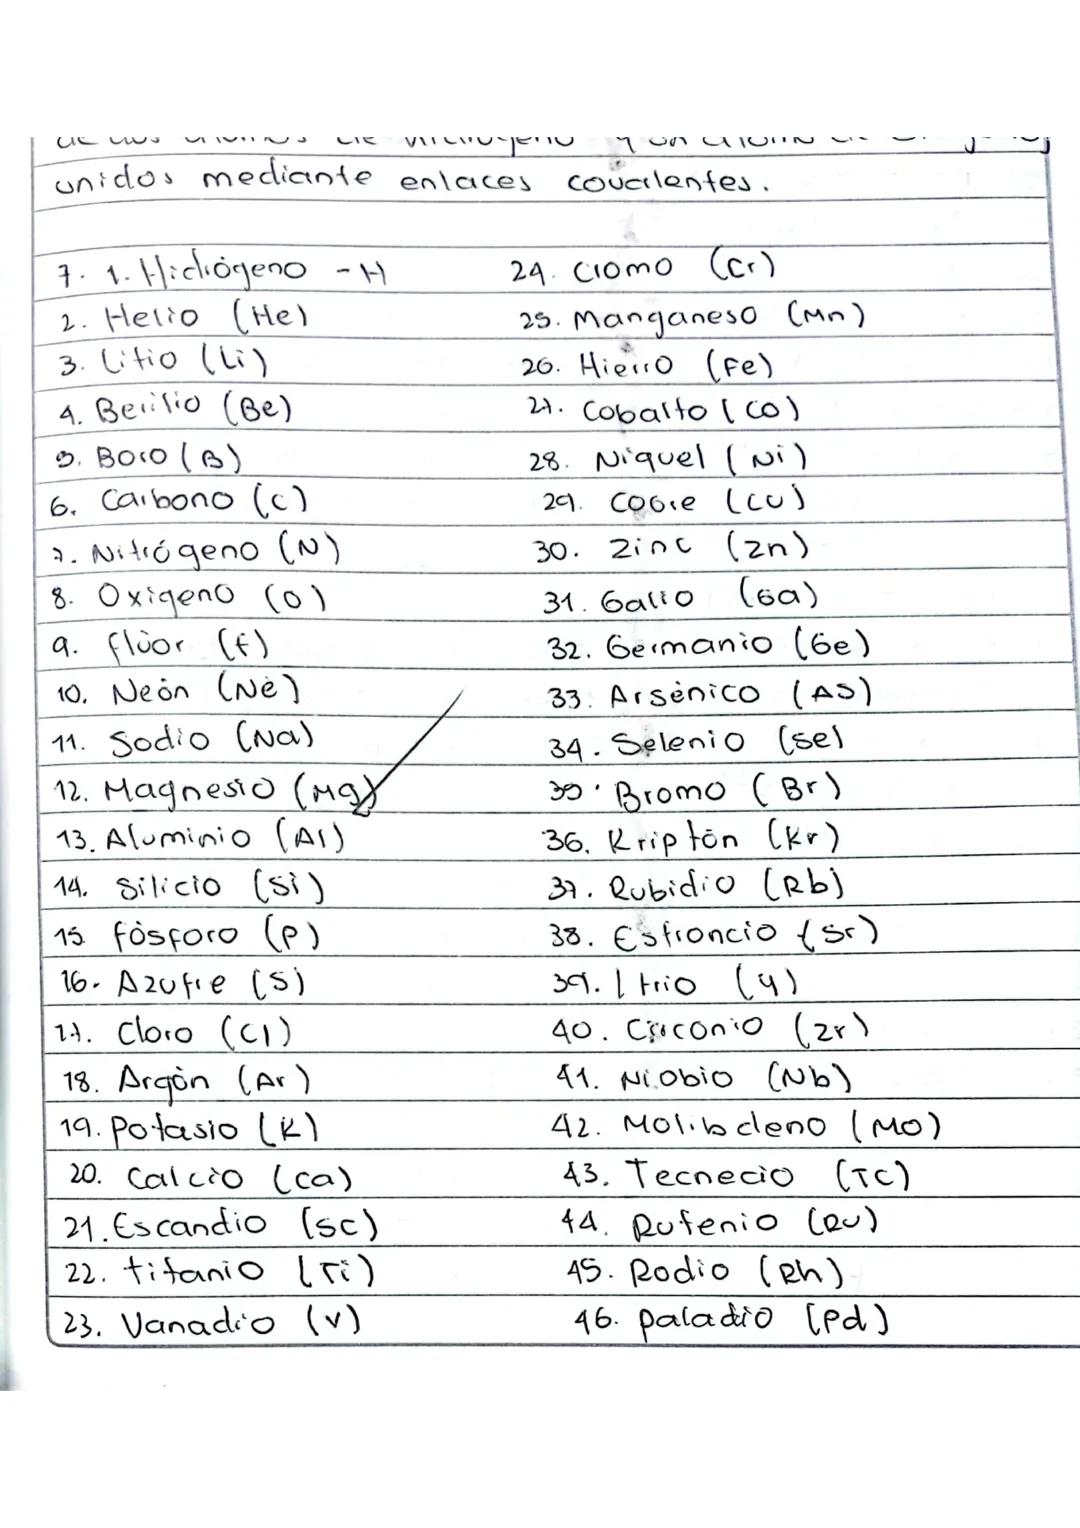 unidos mediante enlaces covalentes.
7. 1. Hidrógeno - H
2. Helio (He)
3. Litio (Li)
4. Berilio (Be)
5. Boro (B)
6. Carbono (C)
7. Nitrógeno (N)
8. Oxigeno (O)
9. flúor (f)
10. Neón (Ne)
11. Sodio (Na)
12. Magnesio (Mg)
13. Aluminio (Al)
14. Silicio (Si)
15 fósforo (P)
16. Azufre (S)
17. Cloro (Cl)
18. Argón (Ar)
19. Potasio (K)
20. Calcio (Ca)
21. Escandio (Sc)
22. titanio (Ti)
23. Vanadio (V)
24. Cromo (Cr)
25. Manganeso (Mn)
26. Hierro (Fe)
27. Cobalto (Co)
28. Niquel (Ni)
29. Cobre (Cu)
30. Zinc (Zn)
31. Galio (Ga)
32. Germanio (Ge)
33. Arsénico (As)
34. Selenio (Se)
35. Bromo (Br)
36. Kriptón (Kr)
37. Rubidio (Rb)
38. Estroncio (Sr)
39. Itrio (Y)
40. Circonio (Zr)
41. Niobio (Nb)
42. Molibdeno (Mo)
43. Tecnecio (Tc)
44. Rutenio (Ru)
45. Rodio (Rh)
46. paladio (Pd)